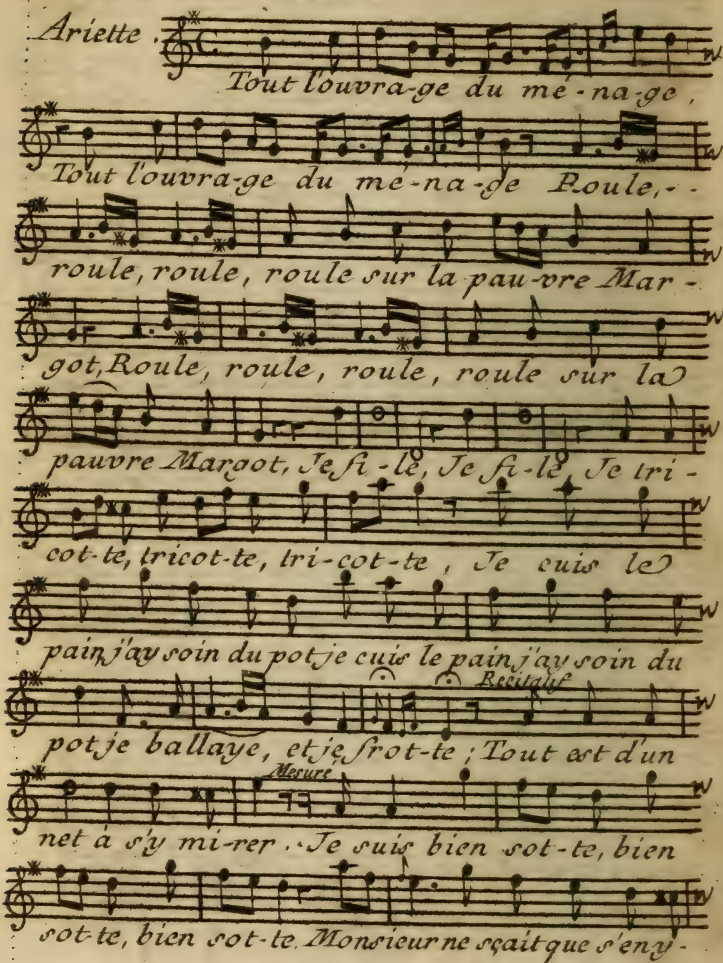 Ariette.
Tout l'ouvra-ge du mé-na-ge,
Tout l'ouvra-ge du mé-na-ge Roule,--
roule, roule, roule sur la pau-vre Mar-
got, Roule, roule, roule, roule sur la
pauvre Margot, Je fi-le, Je fi-le, Je tri-
cot-te, tricot-te, tri-cot-te, Je cuis le
pain j'ay soin du pot je cuis le pain j'ay soin du
Recitatif
pot je ballaye, et je frot-te; Tout est d'un
Mesure
net à s'y mi-rer.. Je suis bien sot-te, bien
sot-te, bien sot-te. Monsieur ne sçait que s'eny-